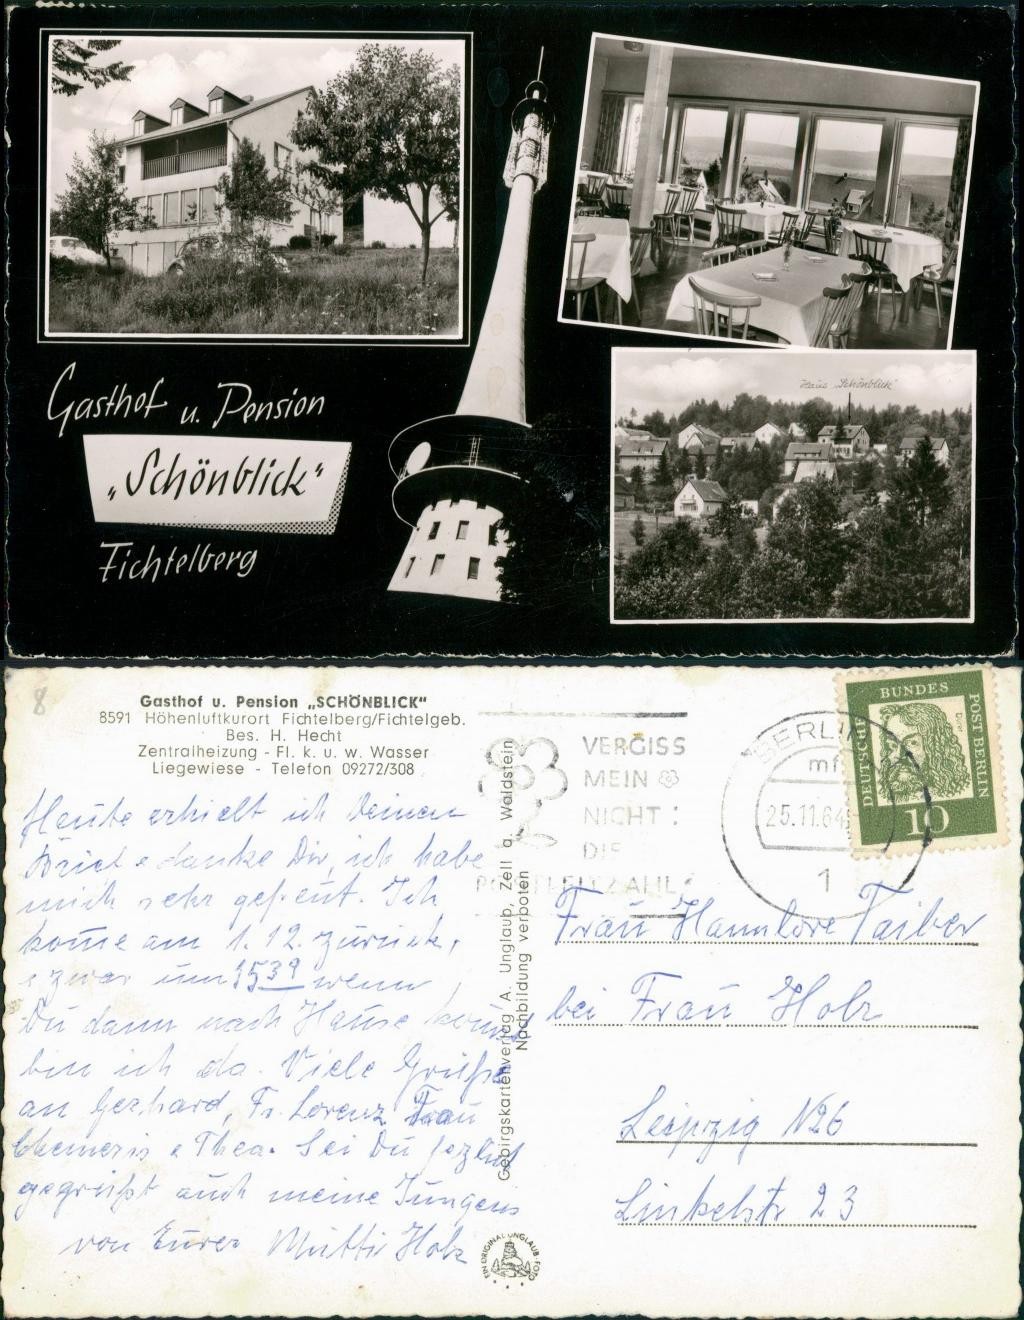 Haus „Schönblick"
Gasthof u. Pension
„Schönblick"
Fichtelberg
8
Gasthof u. Pension „SCHÖNBLICK"
8591 Höhenluftkurort Fichtelberg/Fichtelgeb.
Bes. H. Hecht
Zentralheizung - Fl. k. u. w. Wasser
Liegewiese - Telefon 09272/308
Heute erhielt ich Deinen
Brief & danke Dir, ich habe
mich sehr gefreut. Ich
kome am 1.12. zurück,
& zwar um 15 39 wenn
Du dann nach Hause komst
bin ich da. Viele Grüße
an Gerhard, Fr. Lorenz Frau
& Thea. Sei Du
gegrüßt auch meine Jungens
von Eurer Mutti Holz
Gebirgskartenverlag A. Unglaub, Zell a. Waldstein
Nachbildung verboten
EIN ORIGINAL UNGLAUB-FOTO
VERGISS
MEIN
NICHT:
DIE
POSTLEITZAHL
BERLIN
25.11.64
1
DEUTSCHE BUNDES POST BERLIN
Dürer
10
Frau Hannlore Taiber
bei Frau Holz
Leipzig N26
Linkelstr 23